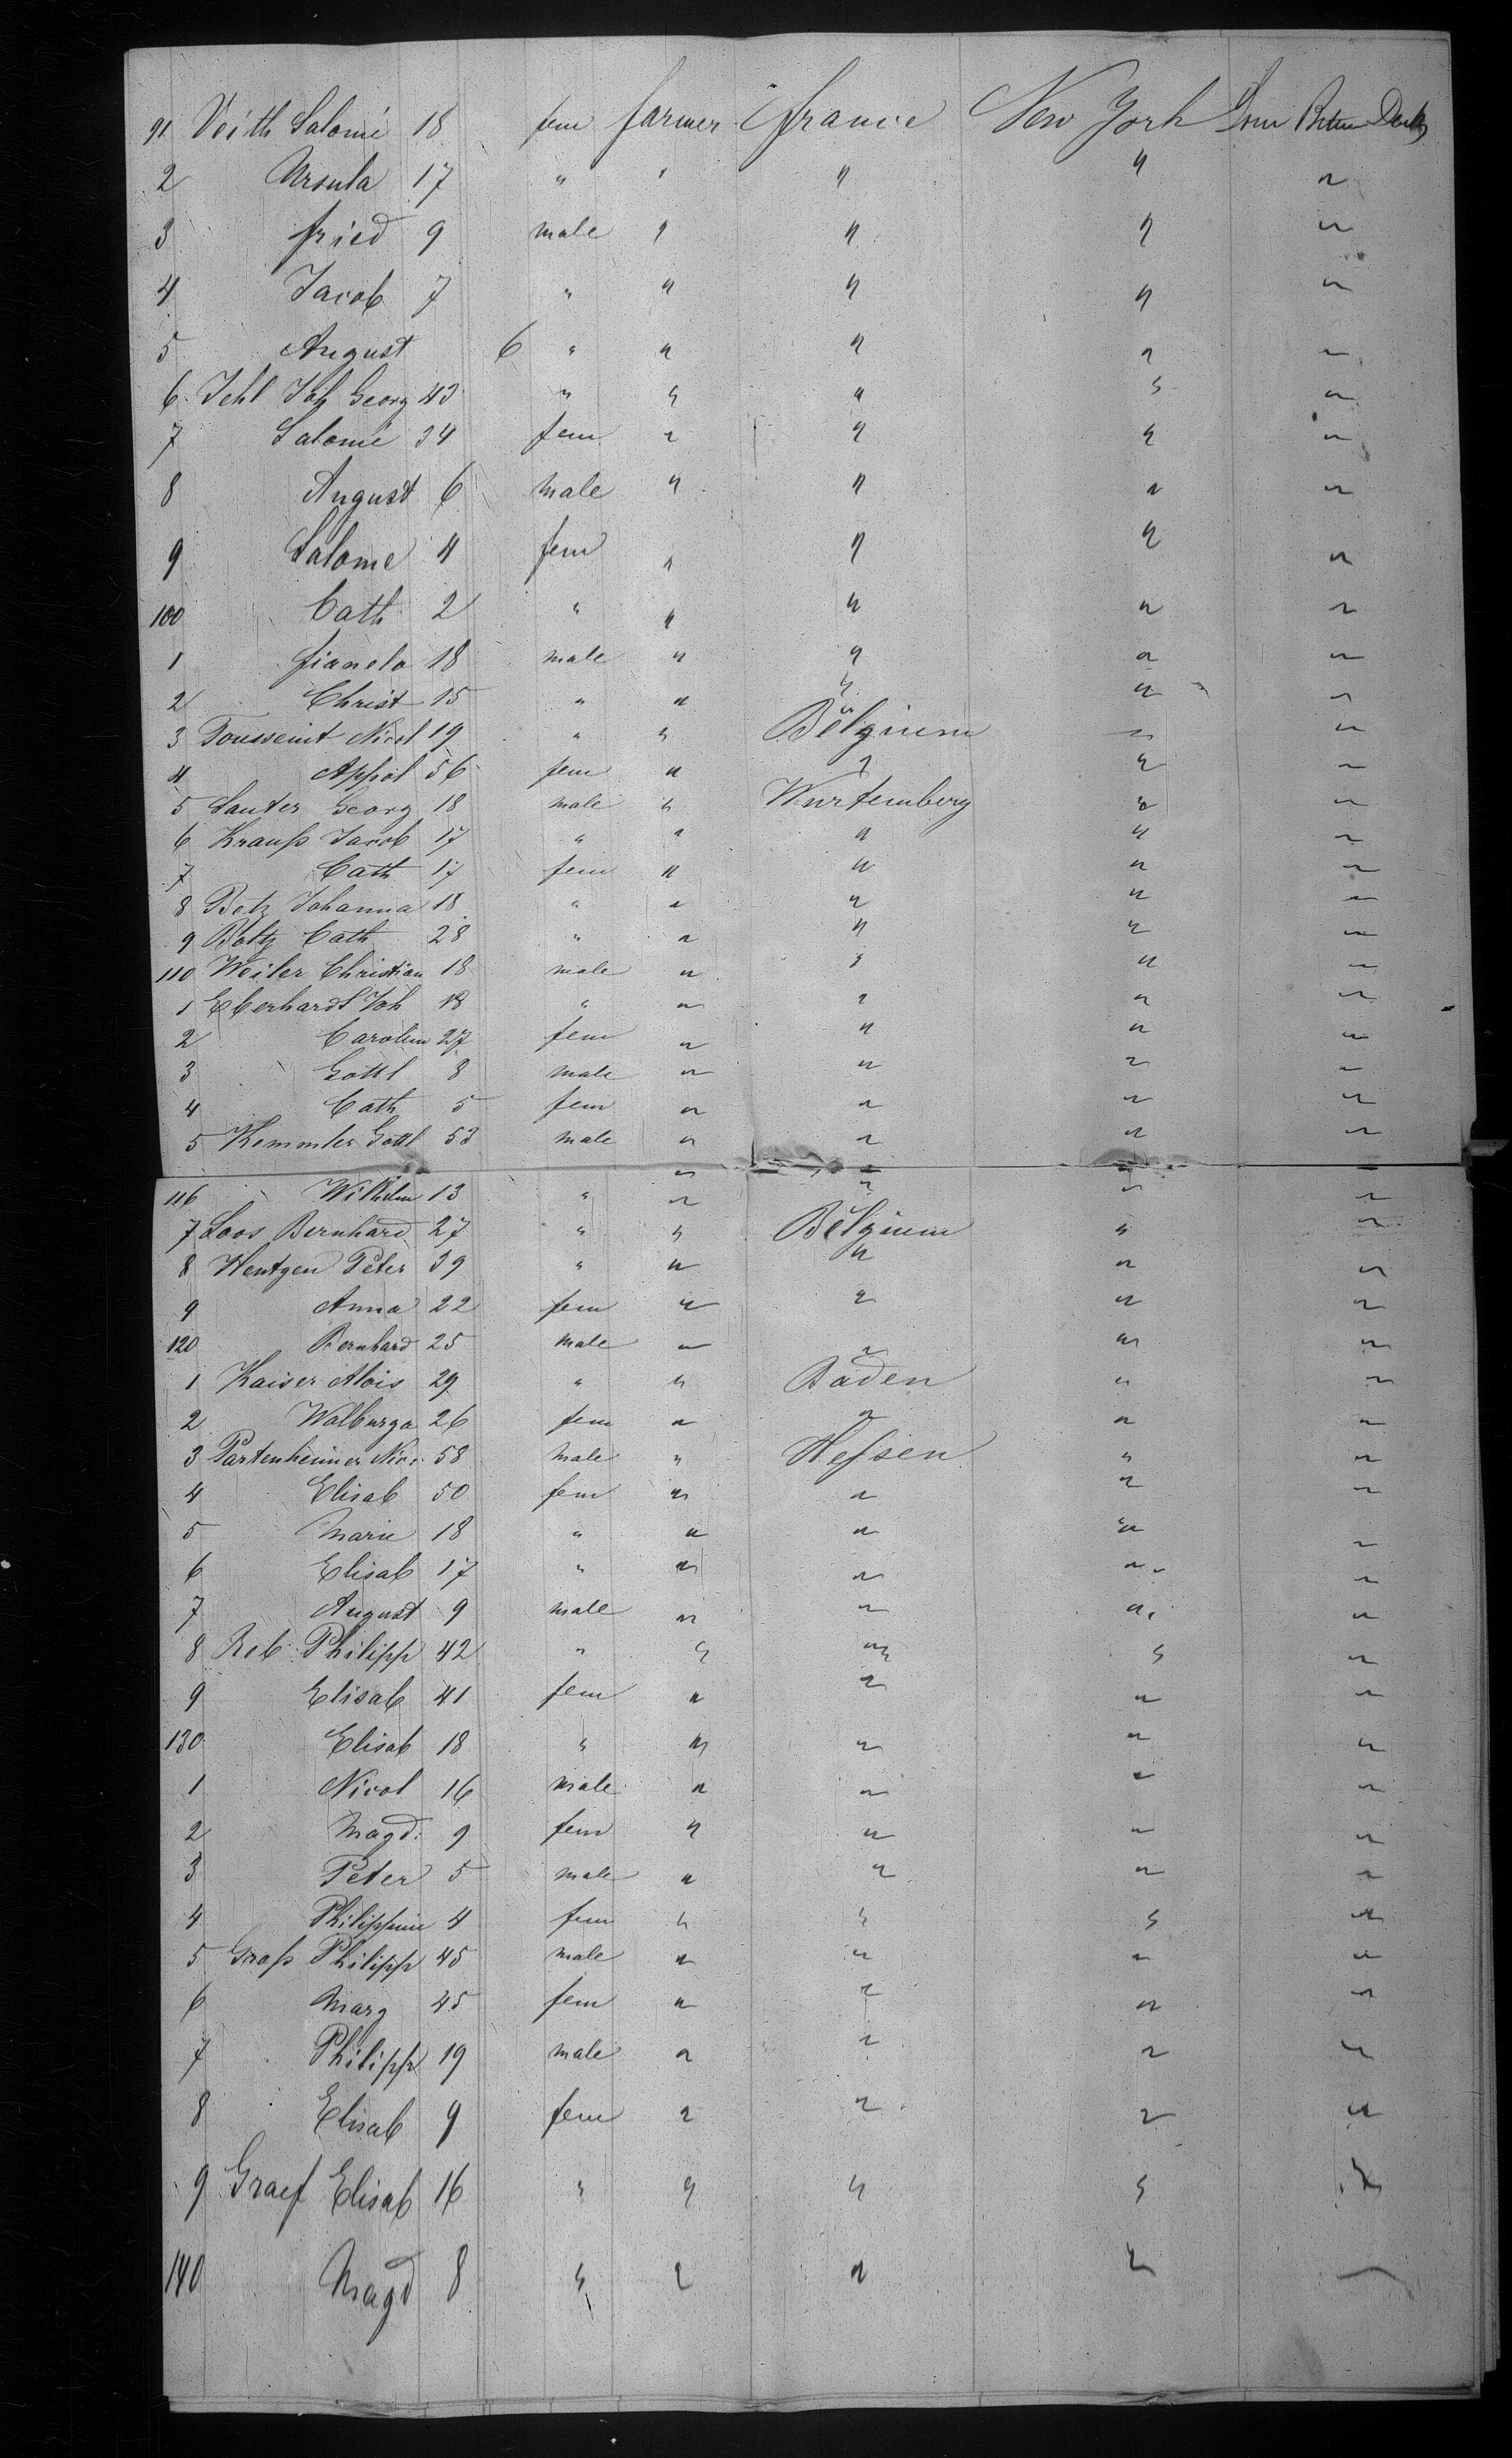 91 Veith Salomé 18 fem farmer france New York Low Betw Decks
2 Ursula 17 " " " " "
3 fried 9 male " " " "
4 Jacob 7 " " " " "
5 August 6 " " " " "
6 Jehl Joh Georg 43 " " " " "
7 Salomé 34 fem " " " "
8 August 6 male " " " "
9 Salome 4 fem " " " "
100 Cath 2 " " " " "
1 18 male " " " "
2 Christ 15 " " " " "
3 Tousseint Nicol 19 " " Belgium " "
4 Appol 56 fem " " " "
5 Sauter Georg 18 male " Wurtemberg " "
6 Krauß Jacob 17 " " " " "
7 Cath 17 fem " " " "
8 Betz Johanna 18 " " " " "
9 Boltz Cath 28 " " " " "
110 Weiler Christian 18 male " " " "
1 Eberhardt Joh " " " " "
2 Carolin 27 fem " " " "
3 Gottl 8 male " " " "
4 Cath 5 fem " " " "
5 Kemmler Gottl 53 male " " " "
116 Wilhelm 13 " " " " "
7 Loos Bernhard 27 " " Belgium " "
8 Hentgen Peter 39 " " " " "
9 Anna 22 fem " " " "
120 Bernhard 25 male " " " "
1 Kaiser Alois 29 " " Baden " "
2 Walburga 26 fem " " " "
3 Partenheimer Nic. 58 male " Heßen " "
4 Elisab 50 fem " " " "
5 Marie 18 " " " " "
6 Elisab 17 " " " " "
7 August 9 male " " " "
8 Reb Philipp 42 " " " " "
9 Elisab 41 fem " " " "
130 Elisab 18 " " " " "
1 Nicol 16 male " " " "
2 Magd. 9 fem " " " "
3 Peter 5 male " " " "
4 Philippine 4 fem " " " "
5 Graß Philipp 45 male " " " "
6 Marg 45 fem " " " "
7 Philipp 19 male " " " "
8 Elisab 9 fem " " " "
9 Graef Elisab 16 " " " " "
140 Magd 8 " " " " "